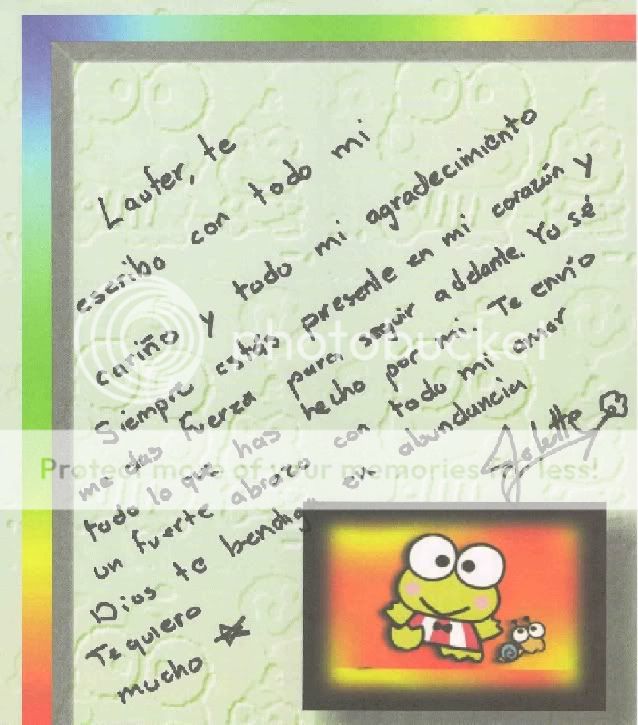 Lauter, te
escribo con todo mi
cariño y todo mi agradecimiento
Siempre estás presente en mi corazón y
me das fuerza para seguir adelante. Yo sé
todo lo que has hecho por mi. Te envío
un fuerte abrazo con todo mi amor
Dios te bendiga en abundancia
Te quiero
mucho
photobucket
Protect more of your memories for less!